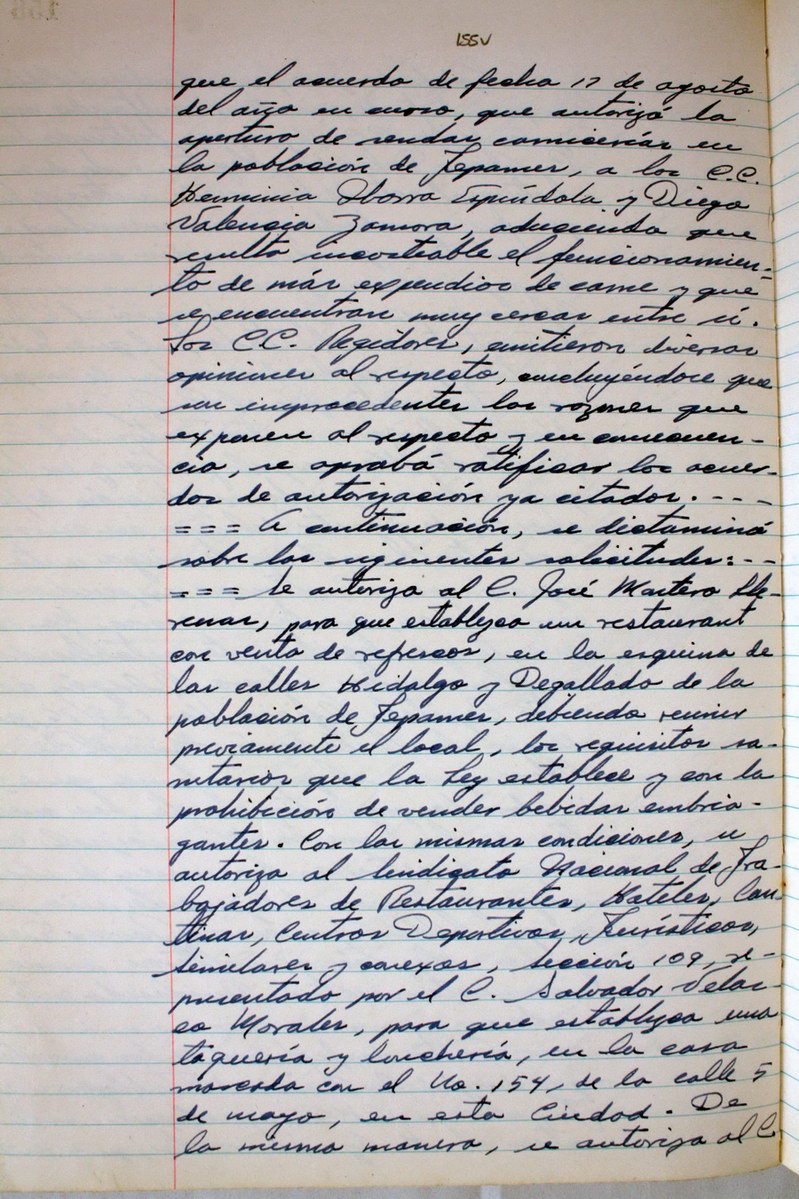 155V
que el acuerdo de fecha 17 de agosto
del año en curso, que autorizó la
apertura de sendas carnicerías en
la población de Tepames, a los C.C.
Herminia Ibarra Espíndola y Diego
Valencia Zamora, aduciendo que
resulta incosteable el funcionamien=
to de más expendios de carne y que
se encuentran muy cercas entre sí.
Los CC. Regidores, emitieron diversas
opiniones al respecto, concluyéndose que
son improcedentes las razones que
exponen al respecto y en consecuen-
cia, se aprobó ratificar los acuer-
dos de autorización ya citados. - - -
= = = A continuación, se dictaminó
sobre las siguientes solicitudes: - -
= = = Se autoriza al C. José Montero Lle-
renas, para que establezca un restaurant
con venta de refrescos, en la esquina de
las calles Hidalgo y Degollado de la
población de Tepames, debiendo reunir
previamente el local, los requisitos sa-
nitarios que la Ley establece y con la
prohibición de vender bebidas embria-
gantes. Con las mismas condiciones, se
autoriza al Sindicato Nacional de Tra-
bajadores de Restaurantes, Hoteles, Can-
tinas, Centros Deportivos, Turísticos,
Similares y conexos, Sección 109, re-
presentado por el C. Salvador Velas-
co Morales, para que establezca una
taquería y lonchería, en la casa
marcada con el No. 154, de la calle 5
de mayo, en esta Ciudad. De
la misma manera, se autoriza al C.